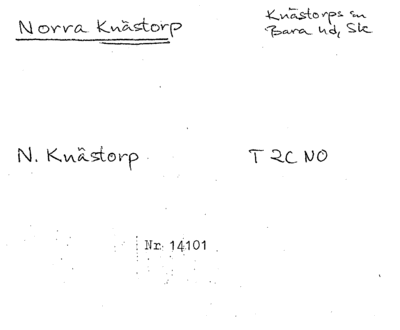 Norra Knästorp
Knästorps sn
Bara hd, Sk
N. Knästorp
T 2C NO
Nr 14101